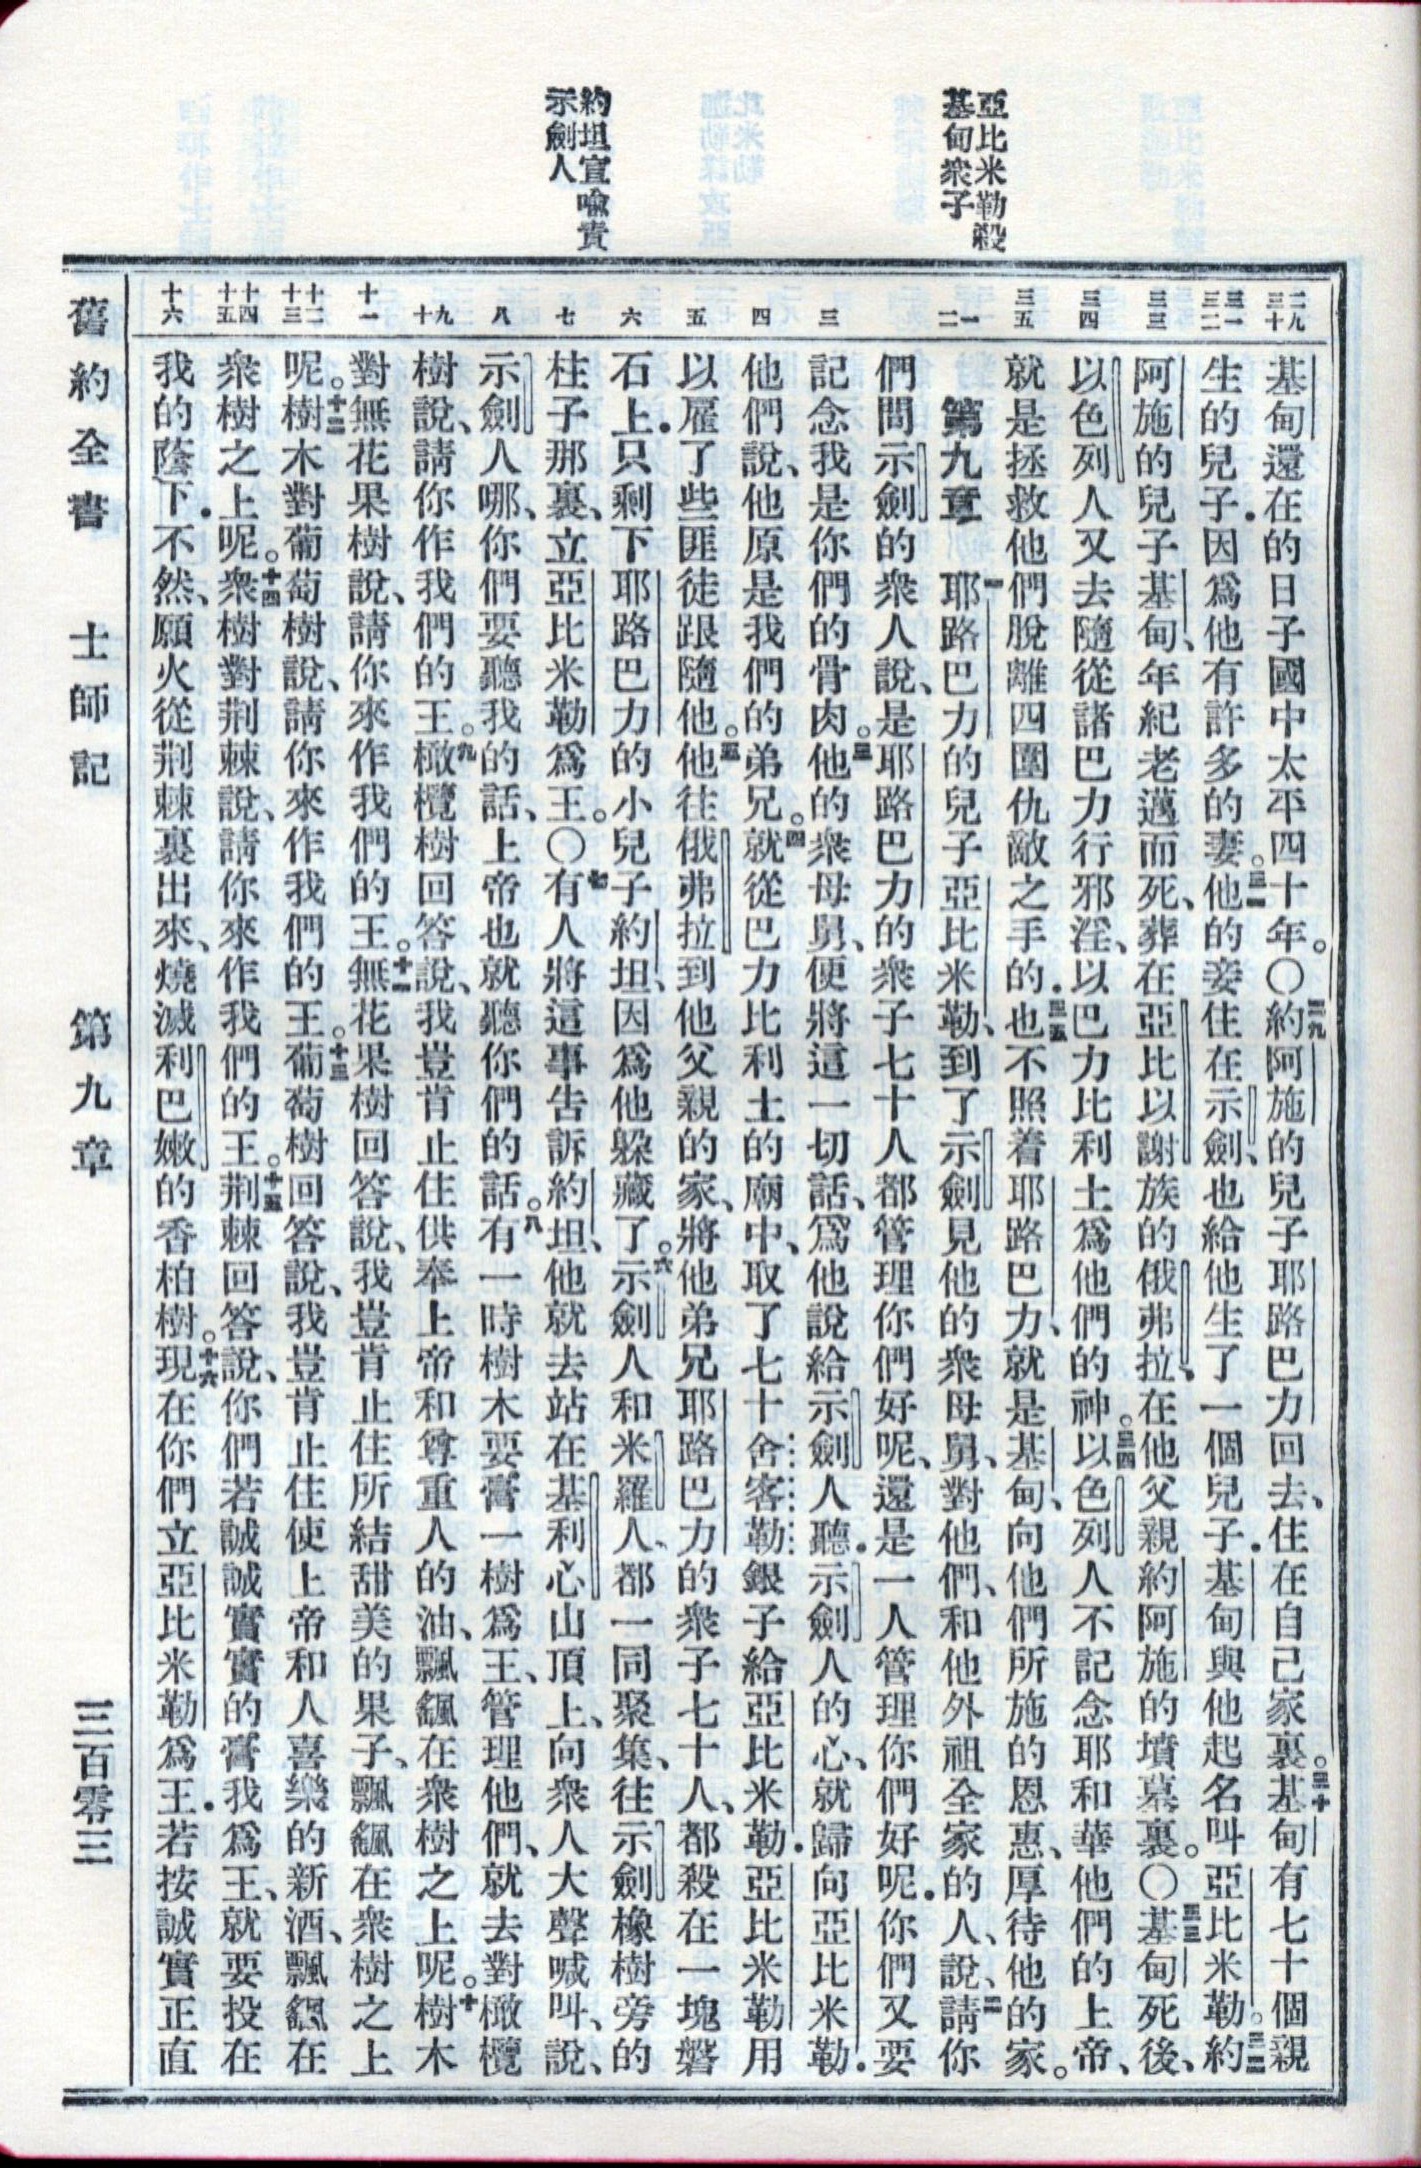 亞比米勒殺
基甸衆子
約坦宣喩責
示劍人
二九
三十
三一
三二
三三
三四
三五
一
二
三
四
五
六
七
八
九
十
十一
十二
十三
十四
十五
十六
基甸還在的日子國中太平四十年。〇二九約阿施的兒子耶路巴力回去、住在自己家裏。三十基甸有七十個親
生的兒子．因爲他有許多的妻。三一他的妾住在示劍、也給他生了一個兒子．基甸與他起名叫亞比米勒。三二約
阿施的兒子基甸、年紀老邁而死、葬在亞比以謝族的俄弗拉、在他父親約阿施的墳墓裏。〇三三基甸死後、
以色列人又去隨從諸巴力行邪淫、以巴力比利土爲他們的神。三四以色列人不記念耶和華他們的上帝、
就是拯救他們脫離四圍仇敵之手的．三五也不照着耶路巴力、就是基甸、向他們所施的恩惠、厚待他的家。
第九章 一耶路巴力的兒子亞比米勒、到了示劍見他的衆母舅、對他們、和他外祖全家的人、說、二請你
們問示劍的衆人說、是耶路巴力的衆子七十人都管理你們好呢、還是一人管理你們好呢．你們又要
記念我是你們的骨肉。三他的衆母舅、便將這一切話、爲他說給示劍人聽．示劍人的心、就歸向亞比米勒．
他們說、他原是我們的弟兄。四就從巴力比利土的廟中、取了七十舍客勒銀子給亞比米勒．亞比米勒用
以雇了些匪徒跟隨他。五他往俄弗拉到他父親的家、將他弟兄耶路巴力的衆子七十人、都殺在一塊磐
石上．只剩下耶路巴力的小兒子約坦、因爲他躱藏了。六示劍人和米羅人、都一同聚集、往示劍橡樹旁的
柱子那裏、立亞比米勒爲王。〇七有人將這事告訴約坦、他就去站在基利心山頂上、向衆人大聲喊叫、說、
示劍人哪、你們要聽我的話、上帝也就聽你們的話。八有一時樹木要膏一樹爲王、管理他們、就去對橄欖
樹說、請你作我們的王。九橄欖樹回答說、我豈肯止住供奉上帝和尊重人的油、飄颻在衆樹之上呢。十樹木
對無花果樹說、請你來作我們的王。十一無花果樹回答說、我豈肯止住所結甜美的果子、飄颻在衆樹之上
呢。十二樹木對葡萄樹說、請你來作我們的王。十三葡萄樹回答說、我豈肯止住使上帝和人喜樂的新酒、飄颻在
衆樹之上呢。十四衆樹對荆棘說、請你來作我們的王。十五荆棘回答說、你們若誠誠實實的膏我爲王、就要投在
我的蔭下．不然、願火從荆棘裏出來、燒滅利巴嫩的香柏樹。十六現在你們立亞比米勒爲王．若按誠實正直
舊約全書 士師記 第九章 三百零三